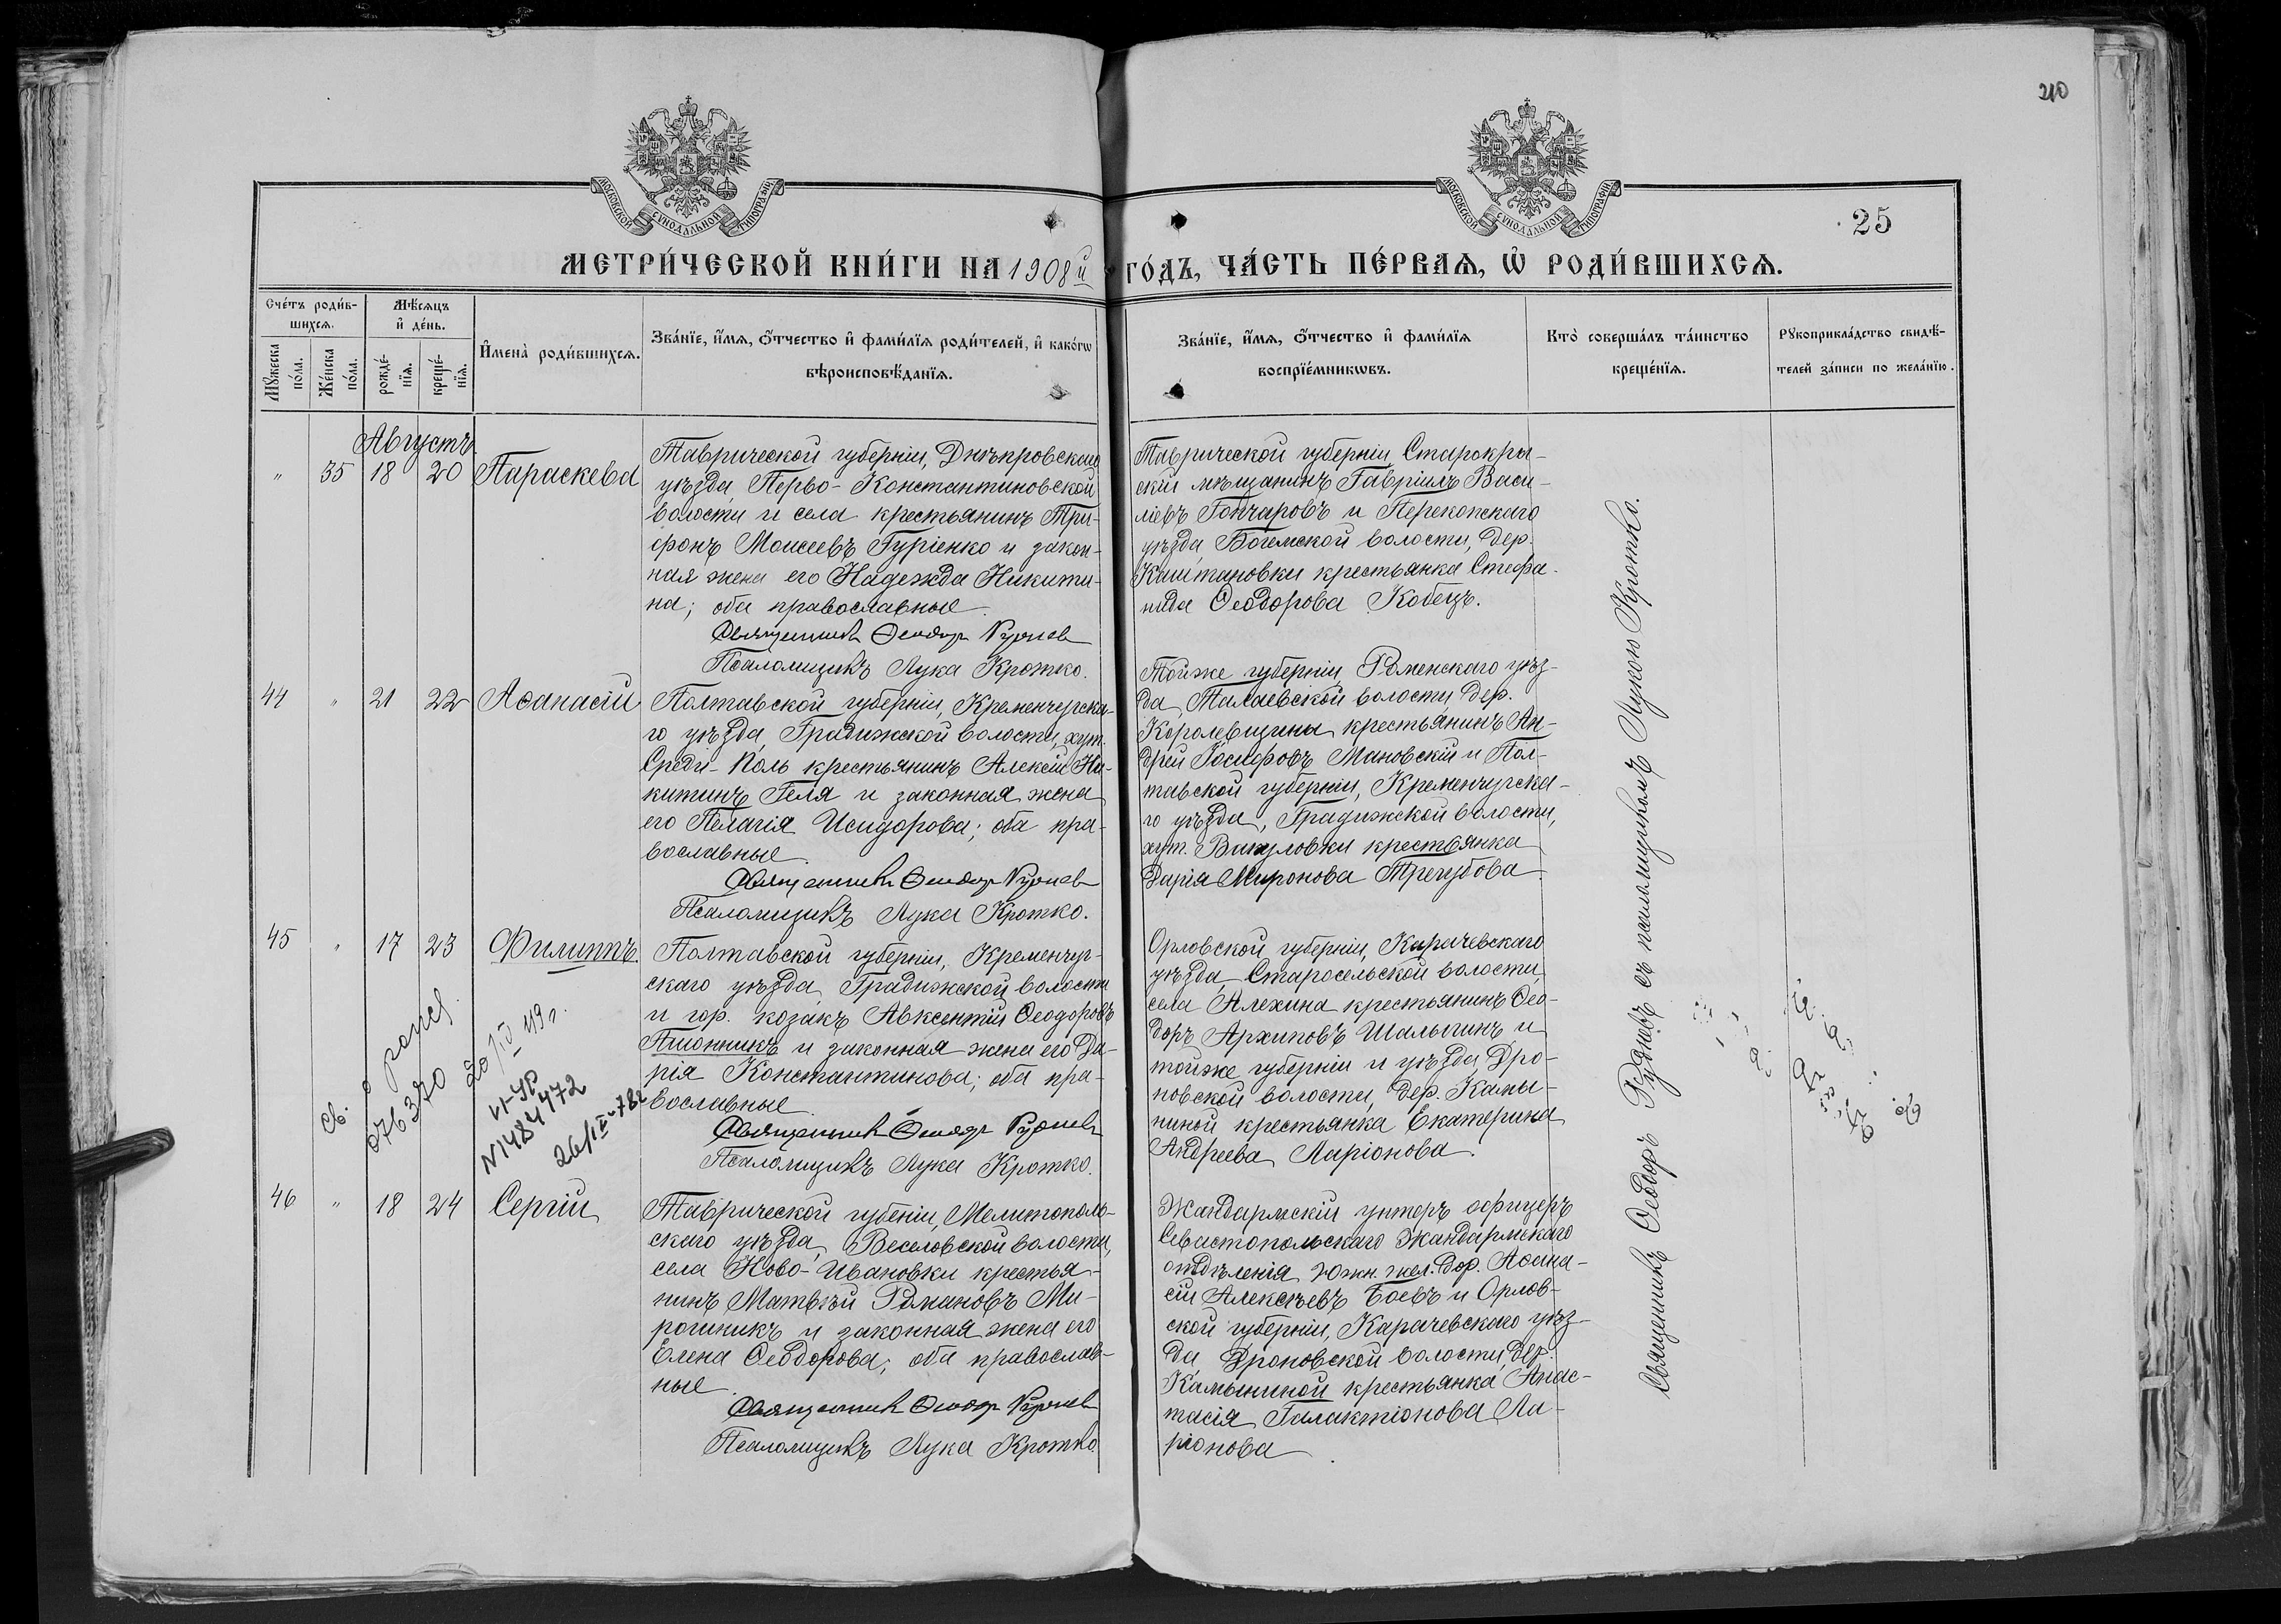 210
МОСКОВСКОЙ СѴНОДАЛЬНОЙ ТИПОГРАФІИ
МОСКОВСКОЙ СѴНОДАЛЬНОЙ ТИПОГРАФІИ
25
МЕТРИ́ЧЕСКОЙ КНИ́ГИ НА 1908й ГО́ДЪ, ЧА́СТЬ ПЕ́РВАѦ, Ѡ҆ РОДИ́ВШИХСѦ.
Сче́тъ роди́в-
шихсѧ.
Мꙋ́жеска по́ла.
Же́нска по́ла.
Мѣ́сѧцъ
и҆ де́нь.
рожде́-
нїѧ.
креще́-
нїѧ.
И҆мена̀ роди́вшихсѧ.
Зва́нїе, и҆́мѧ, ѻ҆́тчество и҆ фами́лїѧ роди́телей, и҆ како́гѡ
вѣроисповѣ́данїѧ.
Зва́нїе, и҆́мѧ, ѻ҆́тчество и҆ фами́лїѧ
воспрїе́мникѡвъ.
Кто̀ соверша́лъ та́инство
креще́нїѧ.
Рꙋкоприкла́дство свидѣ́-
телей за́писи по жела́нїю.
Августъ
" 35 18 20 Параскева
Таврической губерніи, Днѣпровскаго
уѣзда, Перво-Константиновской
волости и села крестьянинъ Три-
фонъ Моисеевъ Гуріенко и закон-
ная жена его Надежда Никити-
на; оба православные.
Священникъ Ѳеодоръ Рудневъ
Псаломщикъ Лука Кротко.
Таврической губерніи Старокры-
скій мѣщанинъ Гавріилъ Васи-
ліевъ Гончаровъ и Перекопскаго
уѣзда, Богемской волости, дер.
Каштановки крестьянка Стефа-
нида Ѳеодорова Кобецъ.
44 " 21 22 Аѳанасій
Полтавской губерніи, Кременчугска-
го уѣзда, Градижской волости, хут.
Среди-Поль крестьянинъ Алексій Ни-
китинъ Геля и законная жена
его Пелагія Исидорова; оба пра-
вославные.
Священникъ Ѳеодоръ Рудневъ
Псаломщикъ Лука Кротко.
Тойже губерніи, Роменскаго уѣз-
да, Талаевской волости, дер.
Королевщины крестьянинъ Ан-
дрей Іосифовъ Мановскій и Пол-
тавской губерніи, Кременчугска-
го уѣзда, Градижской волости,
хут. Викуловки крестьянка
Дарія Миронова Трегубова.
45 " 17 23 Филиппъ.
Полтавской губерніи, Кременчуг-
скаго уѣзда, Градижской волости
и гор. козакъ Авксентій Ѳеодоровъ
Пшонникъ и законная жена его Да-
рія Константинова; оба пра-
вославные.
Священникъ Ѳеодоръ Рудневъ
Псаломщикъ Лука Кротко.
Орловской губерніи, Карачевскаго
уѣзда, Старосельской волости,
села Алехина крестьянинъ Ѳео-
доръ Архиповъ Шалыгинъ и
тойже губерніи и уѣзда, Дро-
новской волости, дер. Камы-
ниной крестьянка Екатерина
Андреева Ларіонова.
св. о
076370
N1484472
46 " 18 24 Сергій
Таврической губеніи, Мелитополь-
скаго уѣзда, Веселовской волости,
села Ново-Ивановки крестья-
нинъ Матвѣй Романовъ Ми-
рошникъ и законная жена его
Елена Ѳеодорова; оба православ-
ные.
Священникъ Ѳеодоръ Рудневъ
Псаломщикъ Лука Кротко
Жандармскій унтеръ офицеръ
Севастопольскаго жандармскаго
отдѣленія Южн. жел. дор. Аѳана-
сій Алексѣевъ Боевъ и Орлов-
ской губерніи, Карачевскаго уѣз-
да, Дроновской волости, дер.
Камыниной крестьянка Анас-
тасія Галактіонова Ла-
ріонова.
Священникъ Ѳеодоръ Рудневъ съ псаломщикомъ Лукою Кротко.